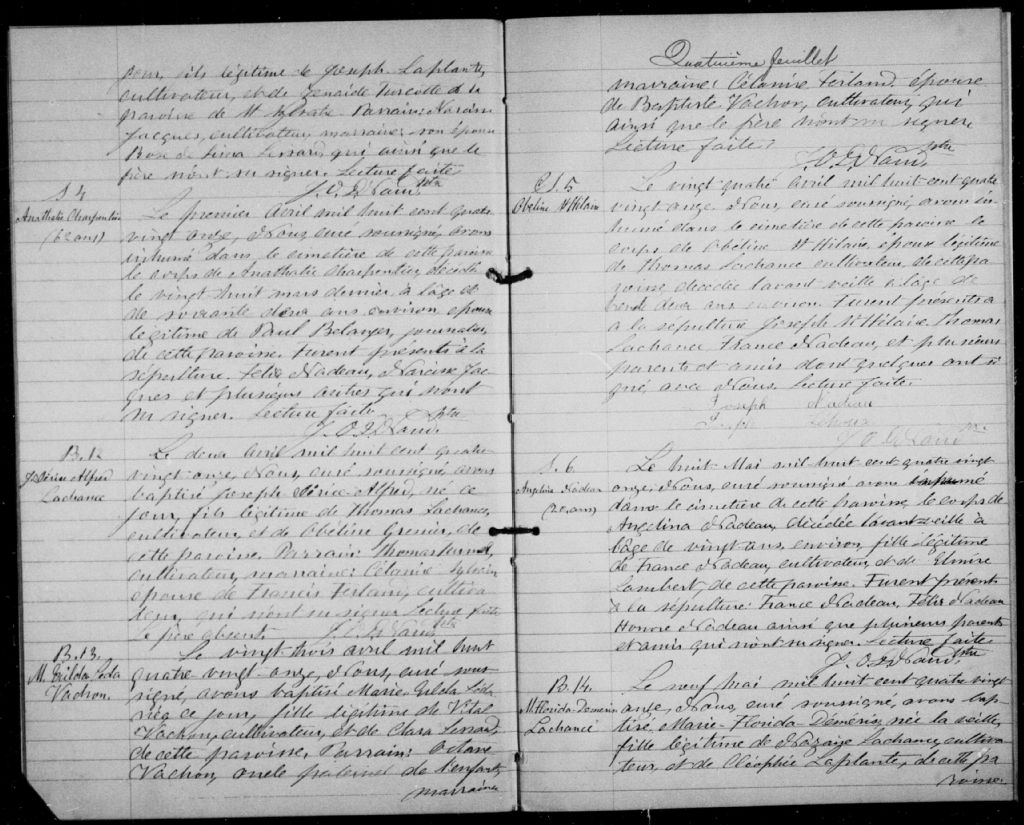 jour, fils légitime de Joseph Laplante,
cultivateur, et de Zénaide Turcotte de la
paroisse de St Sylvestre. Parrain: Narcisse
Jacques, cultivateur, marraine: son épouse
Rose de Lima Lessard, qui ainsi que le
père n'ont su signer. Lecture faite.
J. O. D Naud, Ptre
S 4
Anathalie Charpentier
(62 ans)
Le premier Avril mil huit cent quatre
vingt onze, Nous, curé soussigné, avons
inhumé dans le cimetière de cette paroisse
le corps de Anathalie Charpentier, décédée
le vingt huit mars dernier, à l'âge de
de soixante deux ans environ épouse
légitime de Paul Belanger, journalier,
de cette paroisse. Furent présents à la
sépulture. Félix Nadeau, Narcisse Jac-
ques et plusieurs autres qui n'ont
su signer. Lecture faite
J. O. D Naud. Ptre
B. 12
Js Alfred
Lachance
Le deux Avril mil huit cent quatre
vingt onze, Nous, curé soussigné avons
baptisé Joseph Alfred, né ce
jour, fils légitime de Thomas Lachance,
cultivateur, et de Obéline Grenier, de
cette paroisse. Parrain: Thomas
cultivateur, marraine: Célanise Sylvain
épouse de Francis Ferland, cultiva-
teur, qui n'ont su signer Lecture faite
Le père absent. J. O. D Naud Ptre
B. 13.
M. Exilda Léda
Vachon.
Le vingt trois avril mil huit
quatre vingt-onze, Nous, curé sous-
signé, avons baptisé Marie Exilda Léda
née ce jour, fille légitime de Vital
Vachon, cultivateur, et de Clara Lessard,
de cette paroisse. Parrain: Octave
Vachon, oncle paternel de l'enfant,
marraine
Quatrième feuillet
marraine: Célanise Ferland, épouse
de Baptiste Vachon, cultivateur, qui
ainsi que le père n'ont su signer.
Lecture faite.
J. O. D Naud, Ptre
S. 5
Obéline St Hilaire
Le vingt quatre avril mil huit cent quatre
vingt onze, Nous, curé soussigné, avons in-
humé dans le cimetière de cette paroisse le
corps de Obéline St Hilaire, épouse légitime
de Thomas Lachance cultivateur, de cette pa-
roisse, décédée l'avant veille à l'âge de
deux ans environ. Furent présents
à la sépulture Joseph St Hilaire, Thomas
Lachance, France Nadeau, et plusieurs
parents et amis dont quelques ont si-
gné avec Nous. Lecture faite.
Joseph Nadeau
Joseph
J. O. D Naud Ptre
S. 6
Angelina Nadeau
(20 ans)
Le huit Mai mil huit cent quatre vingt
onze, Nous, curé soussigné avons inhumé
dans le cimetière de cette paroisse, le corps de
Angelina Nadeau, décédée l'avant-veille à
l'âge de vingt ans, environ, fille légitime
de France Nadeau, cultivateur, et de Elmire
Lambert, de cette paroisse. Furent présents
à la sépulture: France Nadeau, Félix Nadeau
Honoré Nadeau ainsi que plusieurs parents
et amis qui n'ont su signer. Lecture faite.
J. O. D Naud, Ptre
B. 14.
M. Florida-Demérise
Lachance
Le neuf Mai mil huit cent quatre vingt
onze, Nous, curé soussigné, avons bap-
tisé, Marie-Florida-Demérise, née la veille,
fille légitime de Nazaire Lachance, cultiva-
teur, et de Cléophée Laplante, de cette pa
roisse.